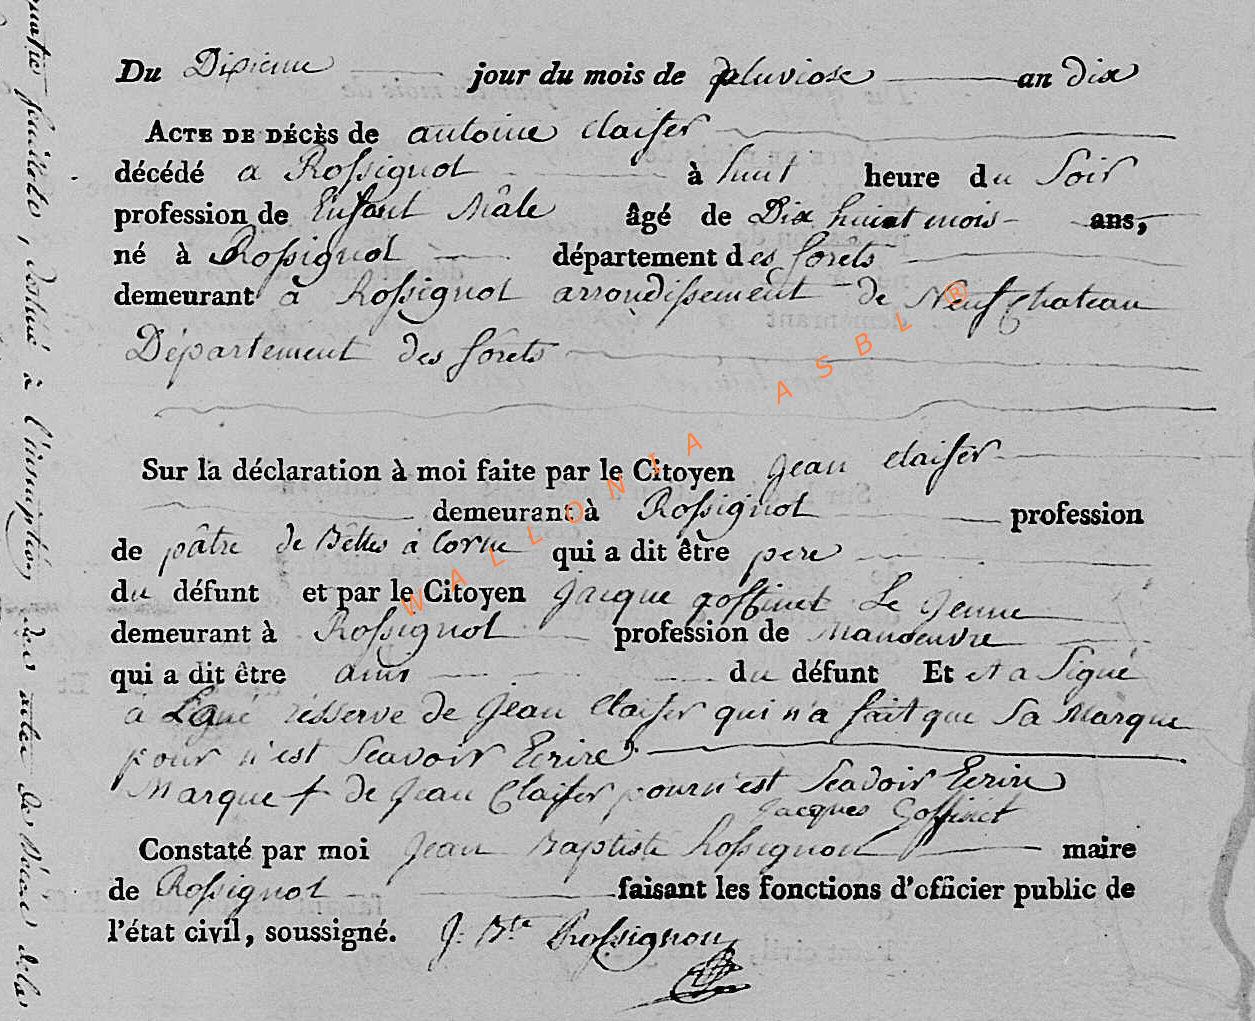 Du Dixieme jour du mois de pluviose an dix
ACTE DE DÉCÈS de antoine claiser
décédé a Rossignol à huit heure du Soir
profession de Enfant Mâle âgé de Dix huit mois ans,
né à Rossignol département des forêts
demeurant à Rossignol arrondissement de Neufchateau
Département des forêts
Sur la déclaration à moi faite par le Citoyen Jean claiser
demeurant à Rossignol profession
de pâtre de Bêtes à Corne qui a dit être pere
du défunt et par le Citoyen Jacque goffinet Le Jeune
demeurant à Rossignol profession de Manoeuvre
qui a dit être amis du défunt Et et a Signé
à résserve de Jean Claiser qui n'a fait que Sa Marque
pour n'est Seavoir Ecrire
Marque + de Jean Claiser pour n'est Seavoir Ecrire
Jacques Goffinet
Constaté par moi Jean Baptiste Rossignon maire
de Rossignol faisant les fonctions d'officier public de
l'état civil, soussigné. J: Bte Rossignon
feuillets, destiné à l'inscription des actes de Décès de la
WALLONIA ASBL ®